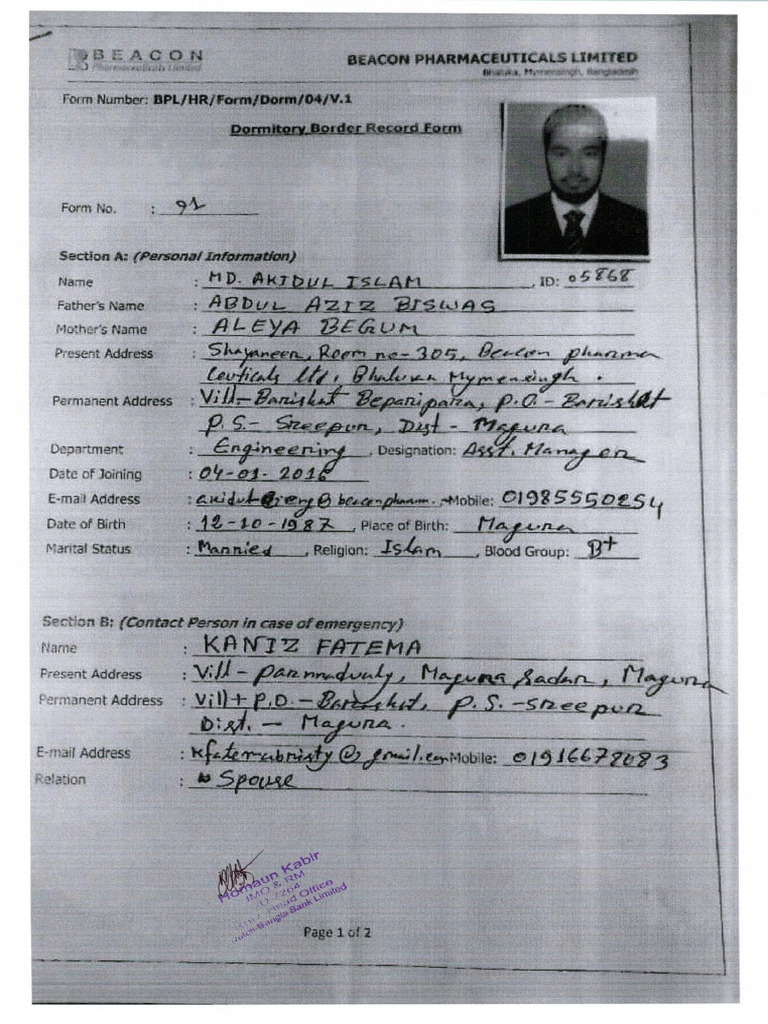 BEACON
Pharmaceuticals Limited
BEACON PHARMACEUTICALS LIMITED
Bhaluka, Mymensingh, Bangladesh
Form Number: BPL/HR/Form/Dorm/04/V.1
Dormitory Border Record Form
Form No. : 91
Section A: (Personal Information)
Name : MD. AKIDUL ISLAM, ID: 05868
Father's Name : ABDUL AZIZ BISWAS
Mother's Name : ALEYA BEGUM
Present Address : Shayaneer, Room no-305, Beacon pharma
ceuticals ltd, Bhaluka Mymensingh.
Permanent Address : Vill- Barishat Beparipara, P.O.- Barishat
P.S.- Sreepur, Dist - Magura
Department : Engineering, Designation: Asst. Manager
Date of Joining : 04-01-2016
E-mail Address : Mobile: 01985550254
Date of Birth : 12-10-1987, Place of Birth: Magura
Marital Status : Married, Religion: Islam, Blood Group: B+
Section B: (Contact Person in case of emergency)
Name : KANIZ FATEMA
Present Address : Vill- Magura Sadar, Magura
Permanent Address : Vill+P.O- Barishat, P.S.-Sreepur
Dist. - Magura.
E-mail Address : Mobile: 01916678083
Relation : Spouse
Homaun Kabir
IMO & RM
ID 7264
Head Office
Dutch-Bangla Bank Limited
Page 1 of 2